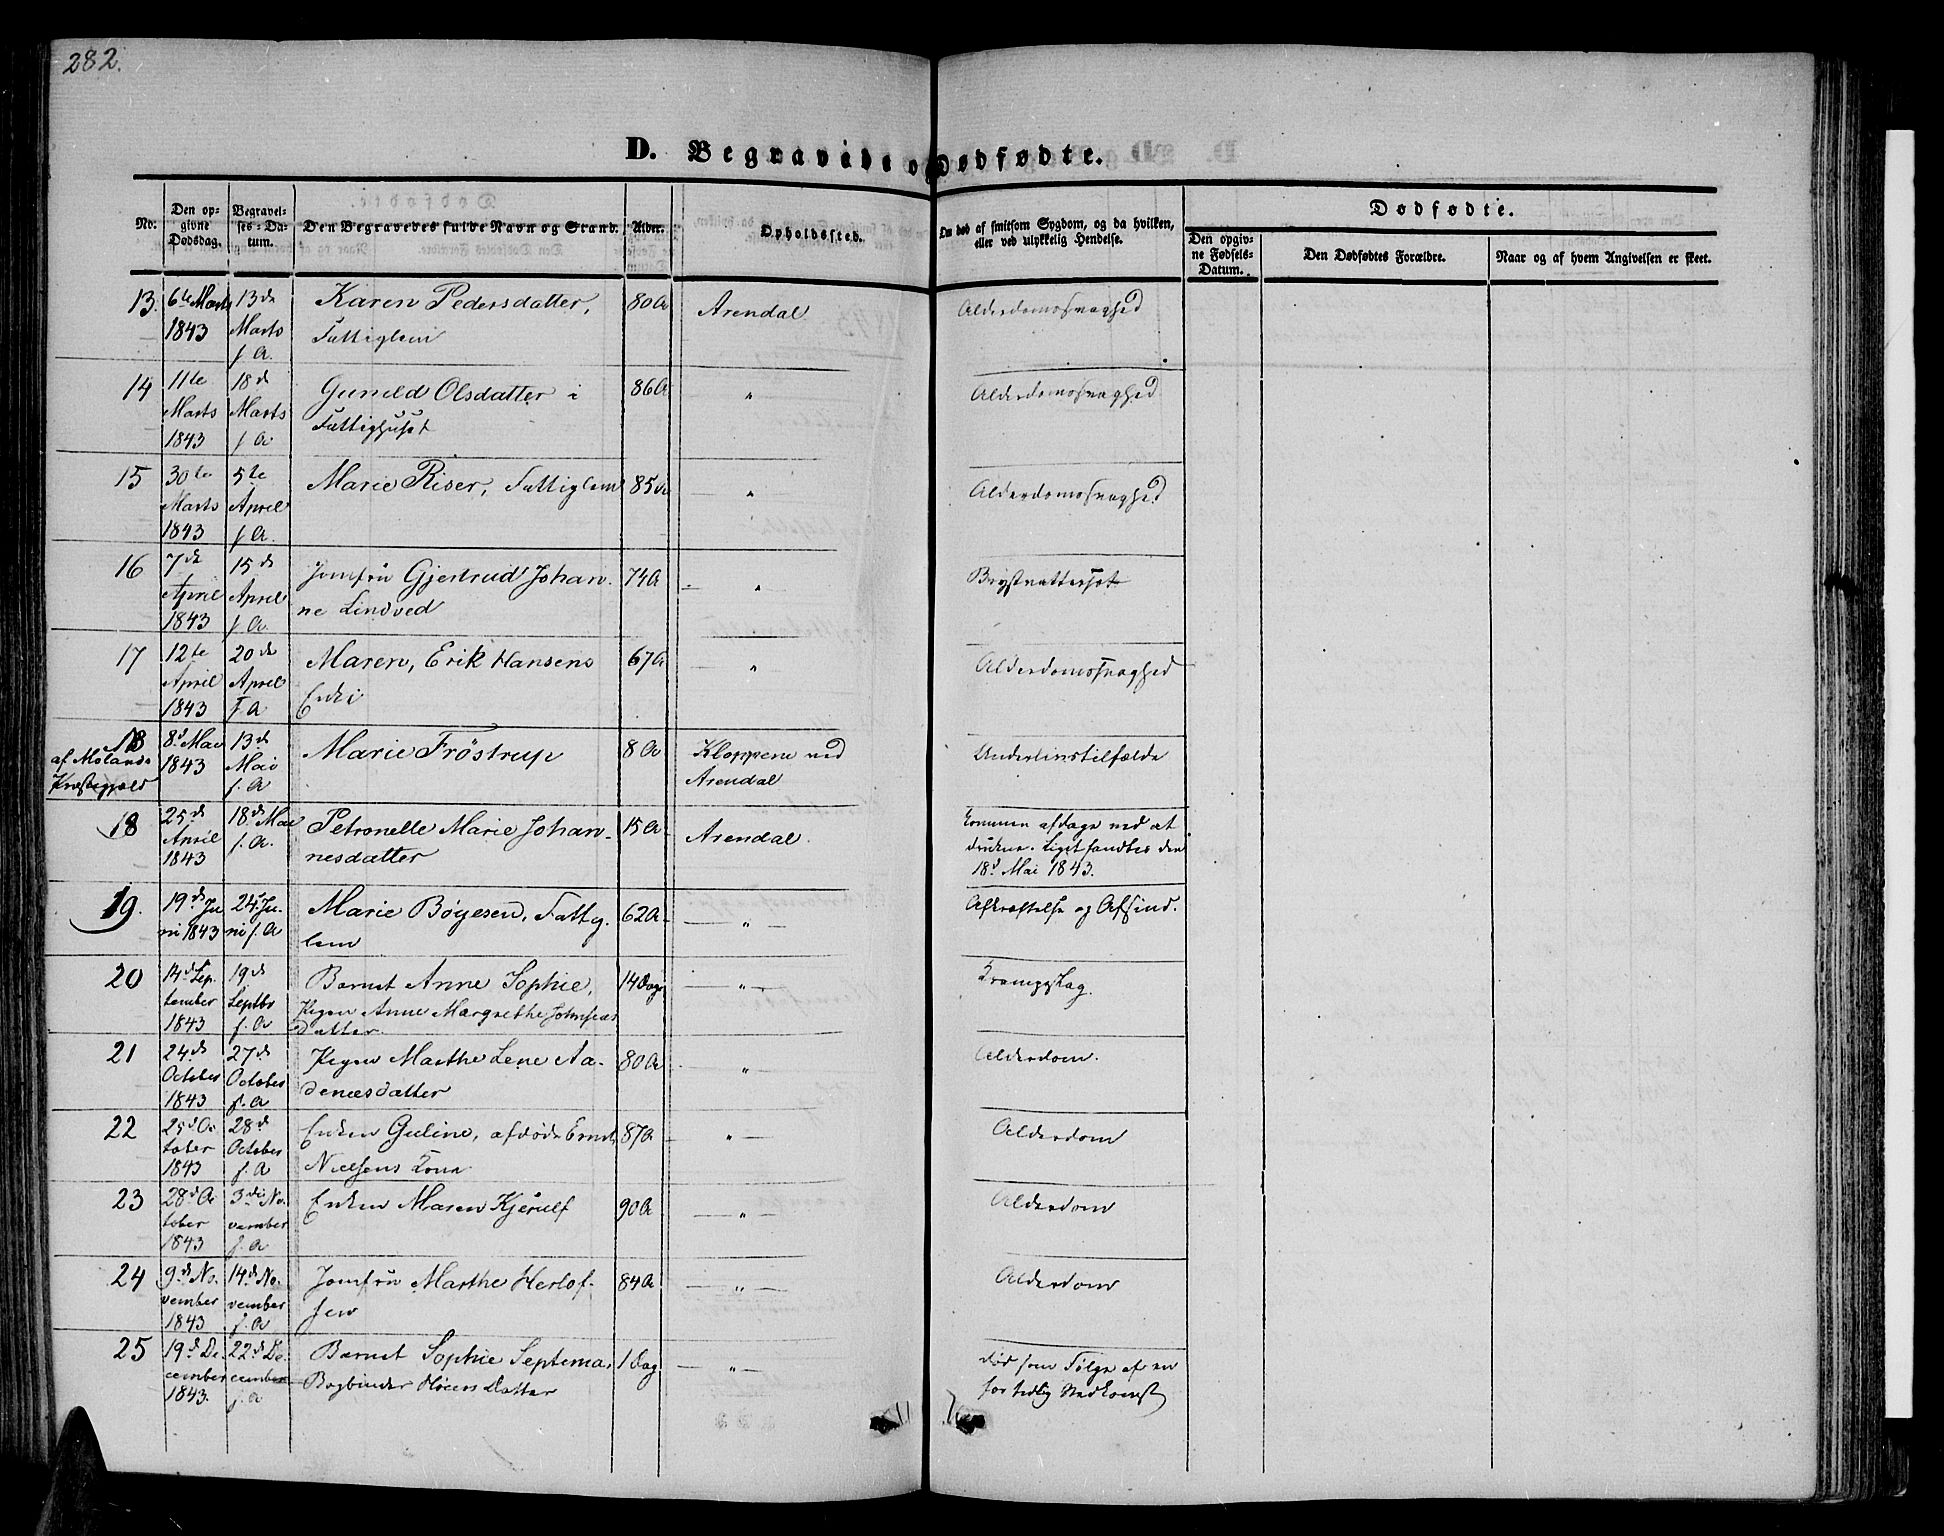 282.
D. Begravede og Dødfødte.
No.
Den opgivne Dødsdag.
Begravelses-Datum.
Den Begravedes fulde Navn og Stand.
Alder.
Opholdssted.
Om død af smitsom Sygdom, og da hvilken, eller ved ulykkelig Hendelse.
Dødfødte.
Den opgivne Fødsels-Datum.
Den Dødfødtes Forældre.
Naar og af hvem Angivelsen er skeet.
13. 6te Marts 13de Karen Pedersdatter, 80 A Arendal Alderdomssvaghed
1843 Marts Fattiglem
f. A.
14 11te 18de Gunild Olsdatter i 86 A " Alderdomssvaghed
Marts Marts Fattighuset
1843 f A
15 30te 5te Marie Riser, Fattiglem 85 A " Alderdomssvaghed
Marts April
1843 f A.
16 7de 15de Jomfru Gjertrud Johan- 74 A " Brystvattersot
April April ne Lindved
1843 f A.
17 12te 20de Maren, Erik Hansens 67 A " Alderdomssvaghed
April April Enke
1843 f A
18 8de Mai 13de Marie Frøstrup 8 A Kloppene ved Underlivstilfælde
af Molands 1843 Mai Arendal
Præstegjæld f. A
18 25de 18de Mai Petronelle Marie Johan- 15 A Arendal. kommen afdage ved at
April f. A. nesdatter drukne. Liget fandtes den
1843 18d Mai 1843.
19. 19de Ju- 24de Ju- Marie Bøyesen, Fattig- 62 A " Afkræftelse og Afsind.
ni 1843 ni f. A lem
20 14de Sep- 19de Barnet Anne Sophie, 14 Dage " Krampeslag.
tember Septbr Pigen Anne Margrethe Johnsens
1843 f. A Datter
21 24de 27de Pigen Marthe Lene Aa- 80 A " Alderdom.
October October denæsdatter
1843 f. A
22 25de Oc- 28de Enken Guline, afdøde Ernst 87 A " Alderdom
tober October Nielsens Kone
1843 f. A
23 28de Oc- 3die No- Enken Maren Kjerulf 90 A " Alderdom
tober vember
1843 f. A
24 9de No- 14de No- Jomfru Marthe Herlof- 84 A " Alderdom
vember vember sen
1843 f. A
25 19de De- 22de De- Barnet Sophie Septema, 1 Dag " død som Følge af en
cember cember Bogbinder Datter for tidlig Nedkomst
1843. f. A